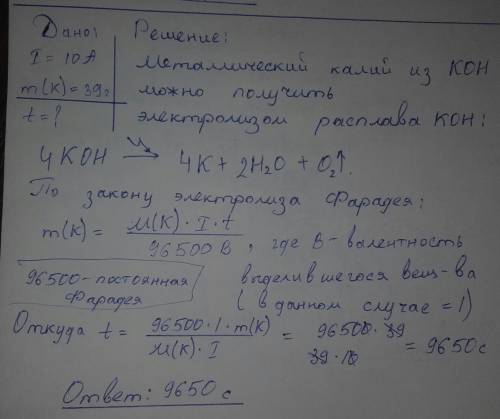 Дано:
I = 10А
m(K) = 39г
t = ?
Решение:
Металлический калий из KOH
можно получить
электролизом расплава KOH:
4KOH → 4K + 2H₂O + O₂↑.
По закону электролиза Фарадея:
m(K) = M(K) · I · t / 96500 В, где В - валентность
96500 - постоянная Фарадея
выделившегося вещ-ва
(в данном случае = 1)
Откуда t = 96500 · 1 · m(K) / M(K) · I = 96500 · 39 / 39 · 10 = 9650 с
Ответ: 9650 с